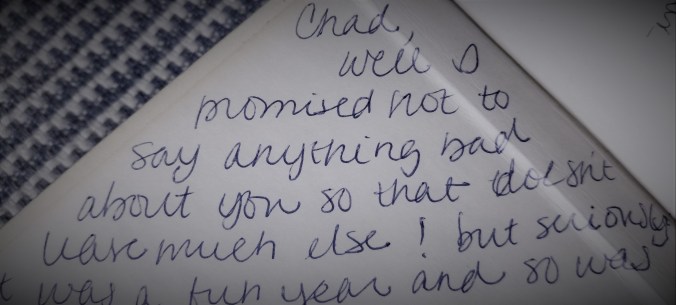 Chad,
well I
promised not to
say anything bad
about you so that doesn't
leave much else! but seriously
it was a fun year and so was